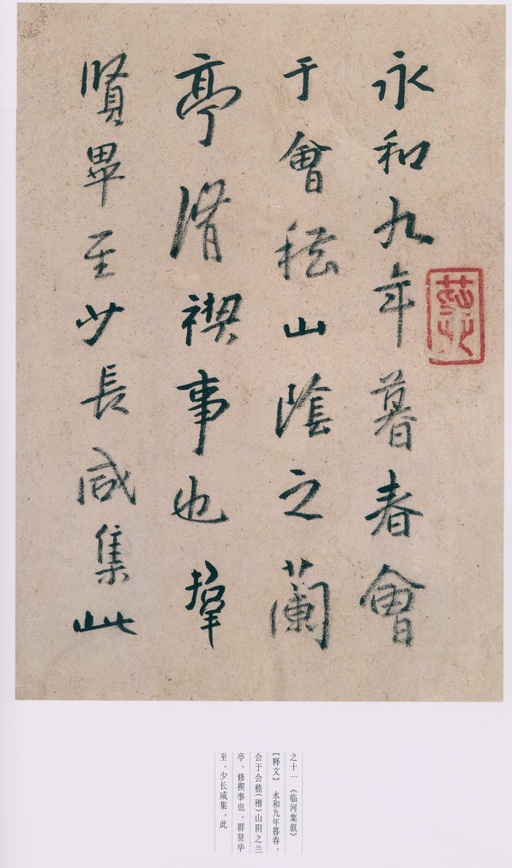 永和九年暮春會
于會嵇山陰之蘭
亭脩禊事也羣
賢畢至少長咸集此
之十一 《临河集叙》
【释文】 永和九年暮春，
会于会嵇(稽)山阴之兰
亭，修禊事也，群贤毕
至，少长咸集，此